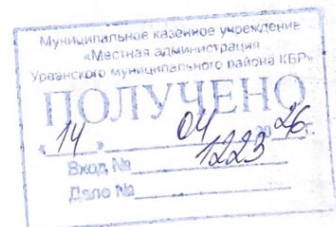 Муниципальное казенное учреждение
«Местная администрация
Урванского муниципального района КБР»
ПОЛУЧЕНО
« 14 » 04 20 26 г.
Вход № 1223
Дело №